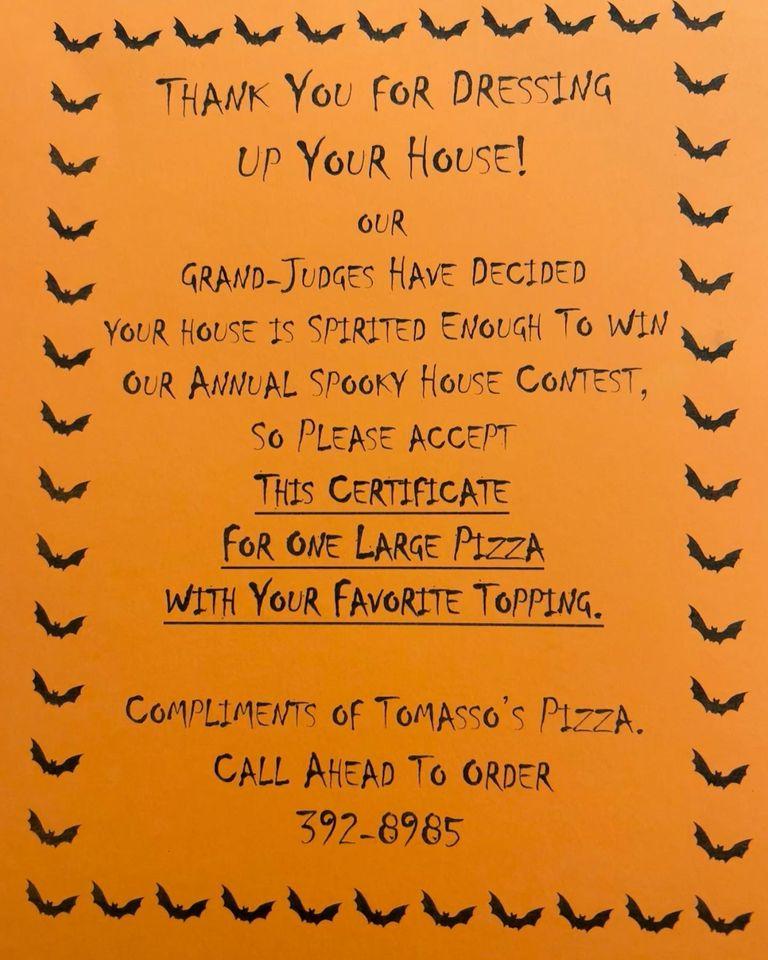 Thank You for Dressing
up Your House!
our
Grand-Judges Have Decided
your house is spirited Enough To win
our Annual spooky House Contest,
so Please accept
This Certificate
For one Large Pizza
with Your Favorite Topping.
Compliments of Tomasso's Pizza.
Call Ahead To order
392-8985